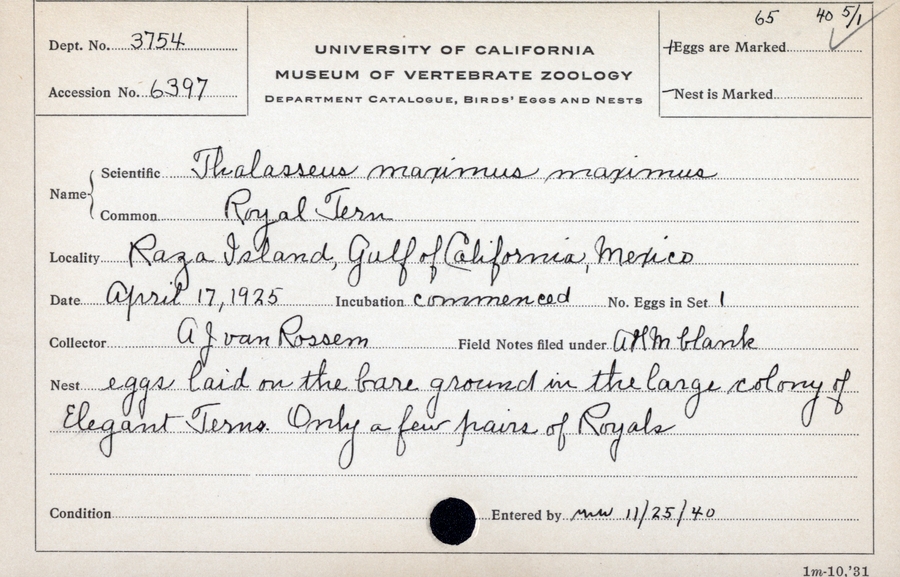 65 40 5/1
Dept. No. 3754
UNIVERSITY OF CALIFORNIA
+Eggs are Marked
MUSEUM OF VERTEBRATE ZOOLOGY
Accession No. 6397
DEPARTMENT CATALOGUE, BIRDS' EGGS AND NESTS
—Nest is Marked
Name { Scientific Thalasseus maximus maximus
Common Royal Tern
Locality Raza Island, Gulf of California, Mexico
Date April 17, 1925 Incubation commenced No. Eggs in Set 1
Collector A J van Rossem Field Notes filed under AHM blank
Nest eggs laid on the bare ground in the large colony of
Elegant Terns. Only a few pairs of Royals
Condition Entered by mw 11/25/40
1m-10,'31